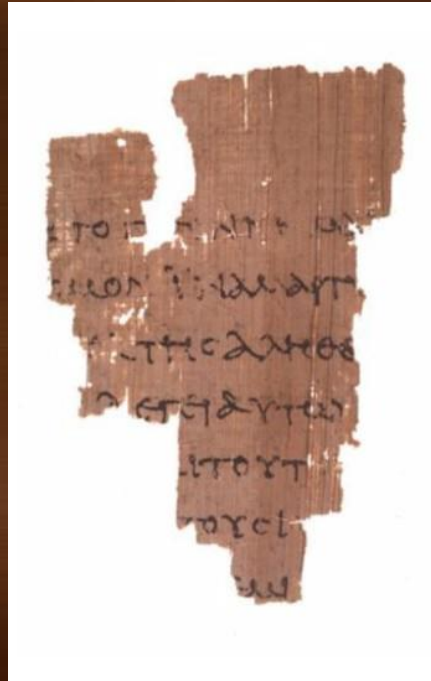 ΤΟ
ϹΜΟΝ ΙΝΑ ΜΑΡΤΥ
ΤΗϹ ΑΛΗΘΕ
ΛΕΓΕΙ ΑΥΤΩ
ΑΙ ΤΟΥΤ
ΤΟΥϹ Ι
ΜΙ